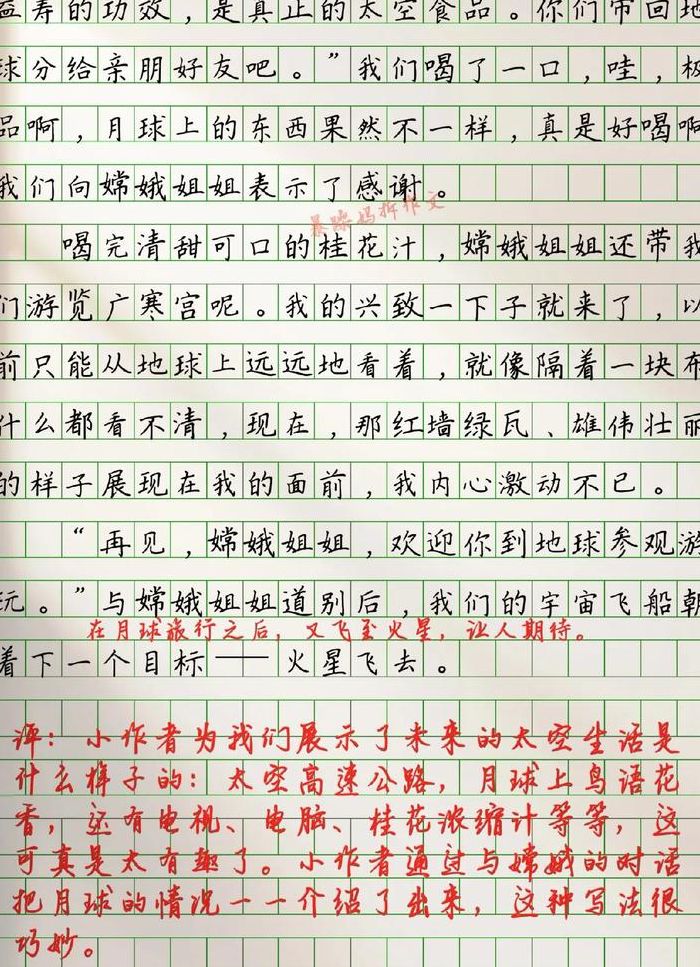 益寿的功效，是真正的太空食品。你们带回地
球分给亲朋好友吧。”我们喝了一口，哇，极
品啊，月球上的东西果然不一样，真是好喝啊
我们向嫦娥姐姐表示了感谢。
暴躁妈拆作文
喝完清甜可口的桂花汁，嫦娥姐姐还带我
们游览广寒宫呢。我的兴致一下子就来了，以
前只能从地球上远远地看着，就像隔着一块布
什么都看不清，现在，那红墙绿瓦、雄伟壮丽
的样子展现在我的面前，我内心激动不已。
“再见，嫦娥姐姐，欢迎你到地球参观游
玩。”与嫦娥姐姐道别后，我们的宇宙飞船朝
在月球旅行之后，又飞至火星，让人期待。
着下一个目标——火星飞去。
评：小作者为我们展示了未来的太空生活是
什么样子的：太空高速公路，月球上鸟语花
香，还有电视、电脑、桂花浓缩汁等等，这
可真是太有趣了。小作者通过与嫦娥的对话
把月球的情况一一介绍了出来，这种写法很
巧妙。